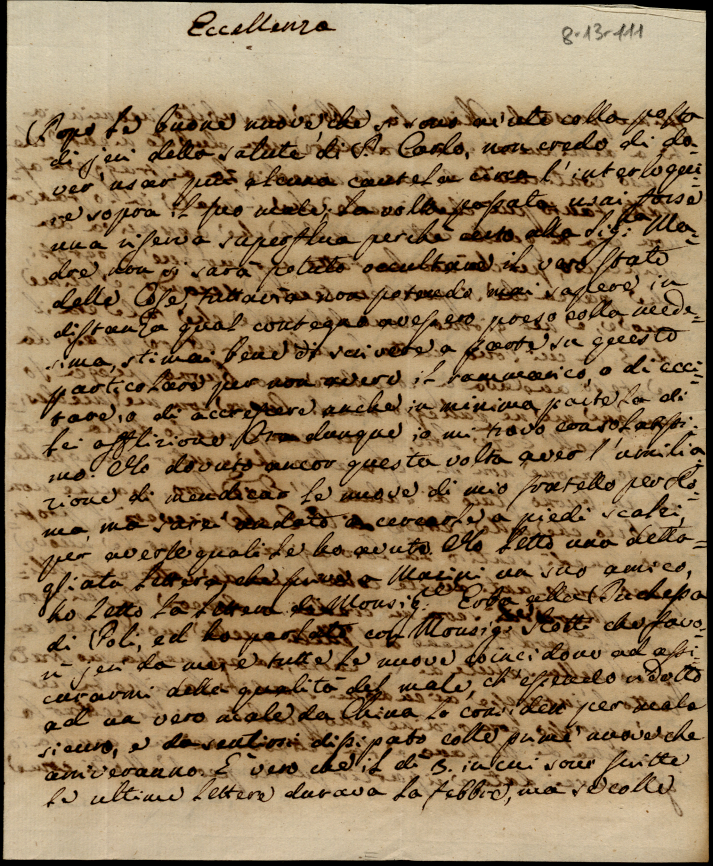 Eccellenza
8-13-111
Dopo le buone nuove che si sono avute colla posta
di jeri della salute di D. Carlo, non credo di do-
ver usar più alcuna cautela circa l'interloqui-
re sopra il suo male. La volta passata usai forse
una riserva superflua perchè anco alla Sig.ra Ma-
dre non si sarà potuto occultare il vero stato
delle cose, tuttavia non potendo mai sapere in
distanza qual contegno avessero preso colla mede-
sima, stimai bene di scrivere a parte su questo
particolare per non avere il rammarico, o di ecci-
tare, o di accrescere anche in minima parte la di
lei afflizione. Ora dunque io mi trovo consolatissi-
mo. Ho dovuto ancor questa volta aver l'umilia-
zione di mendicar le nuove di mio fratello per Ro-
ma, ma sarei andato a cercarle a piedi scalzi,
per averle quali le ho avute. Ho letto una detta-
gliata lettera, che scrive a Marini un suo amico,
ho letto la lettera di Monsig.r Erba alla Duchessa
di Poli, ed ho parlato con Monsig.r Scotti che favo-
rì jeri da me e tutte le nuove coincidono ad assi-
curarmi della qualità del male, ch'essendo ridotto
ad un vero male da China lo considero per male
sicuro, e da sentirsi dissipato colle prime nuove che
arriveranno. È vero che il dì 3. in cui sono scritte
le ultime lettere durava la febbre, ma se colle